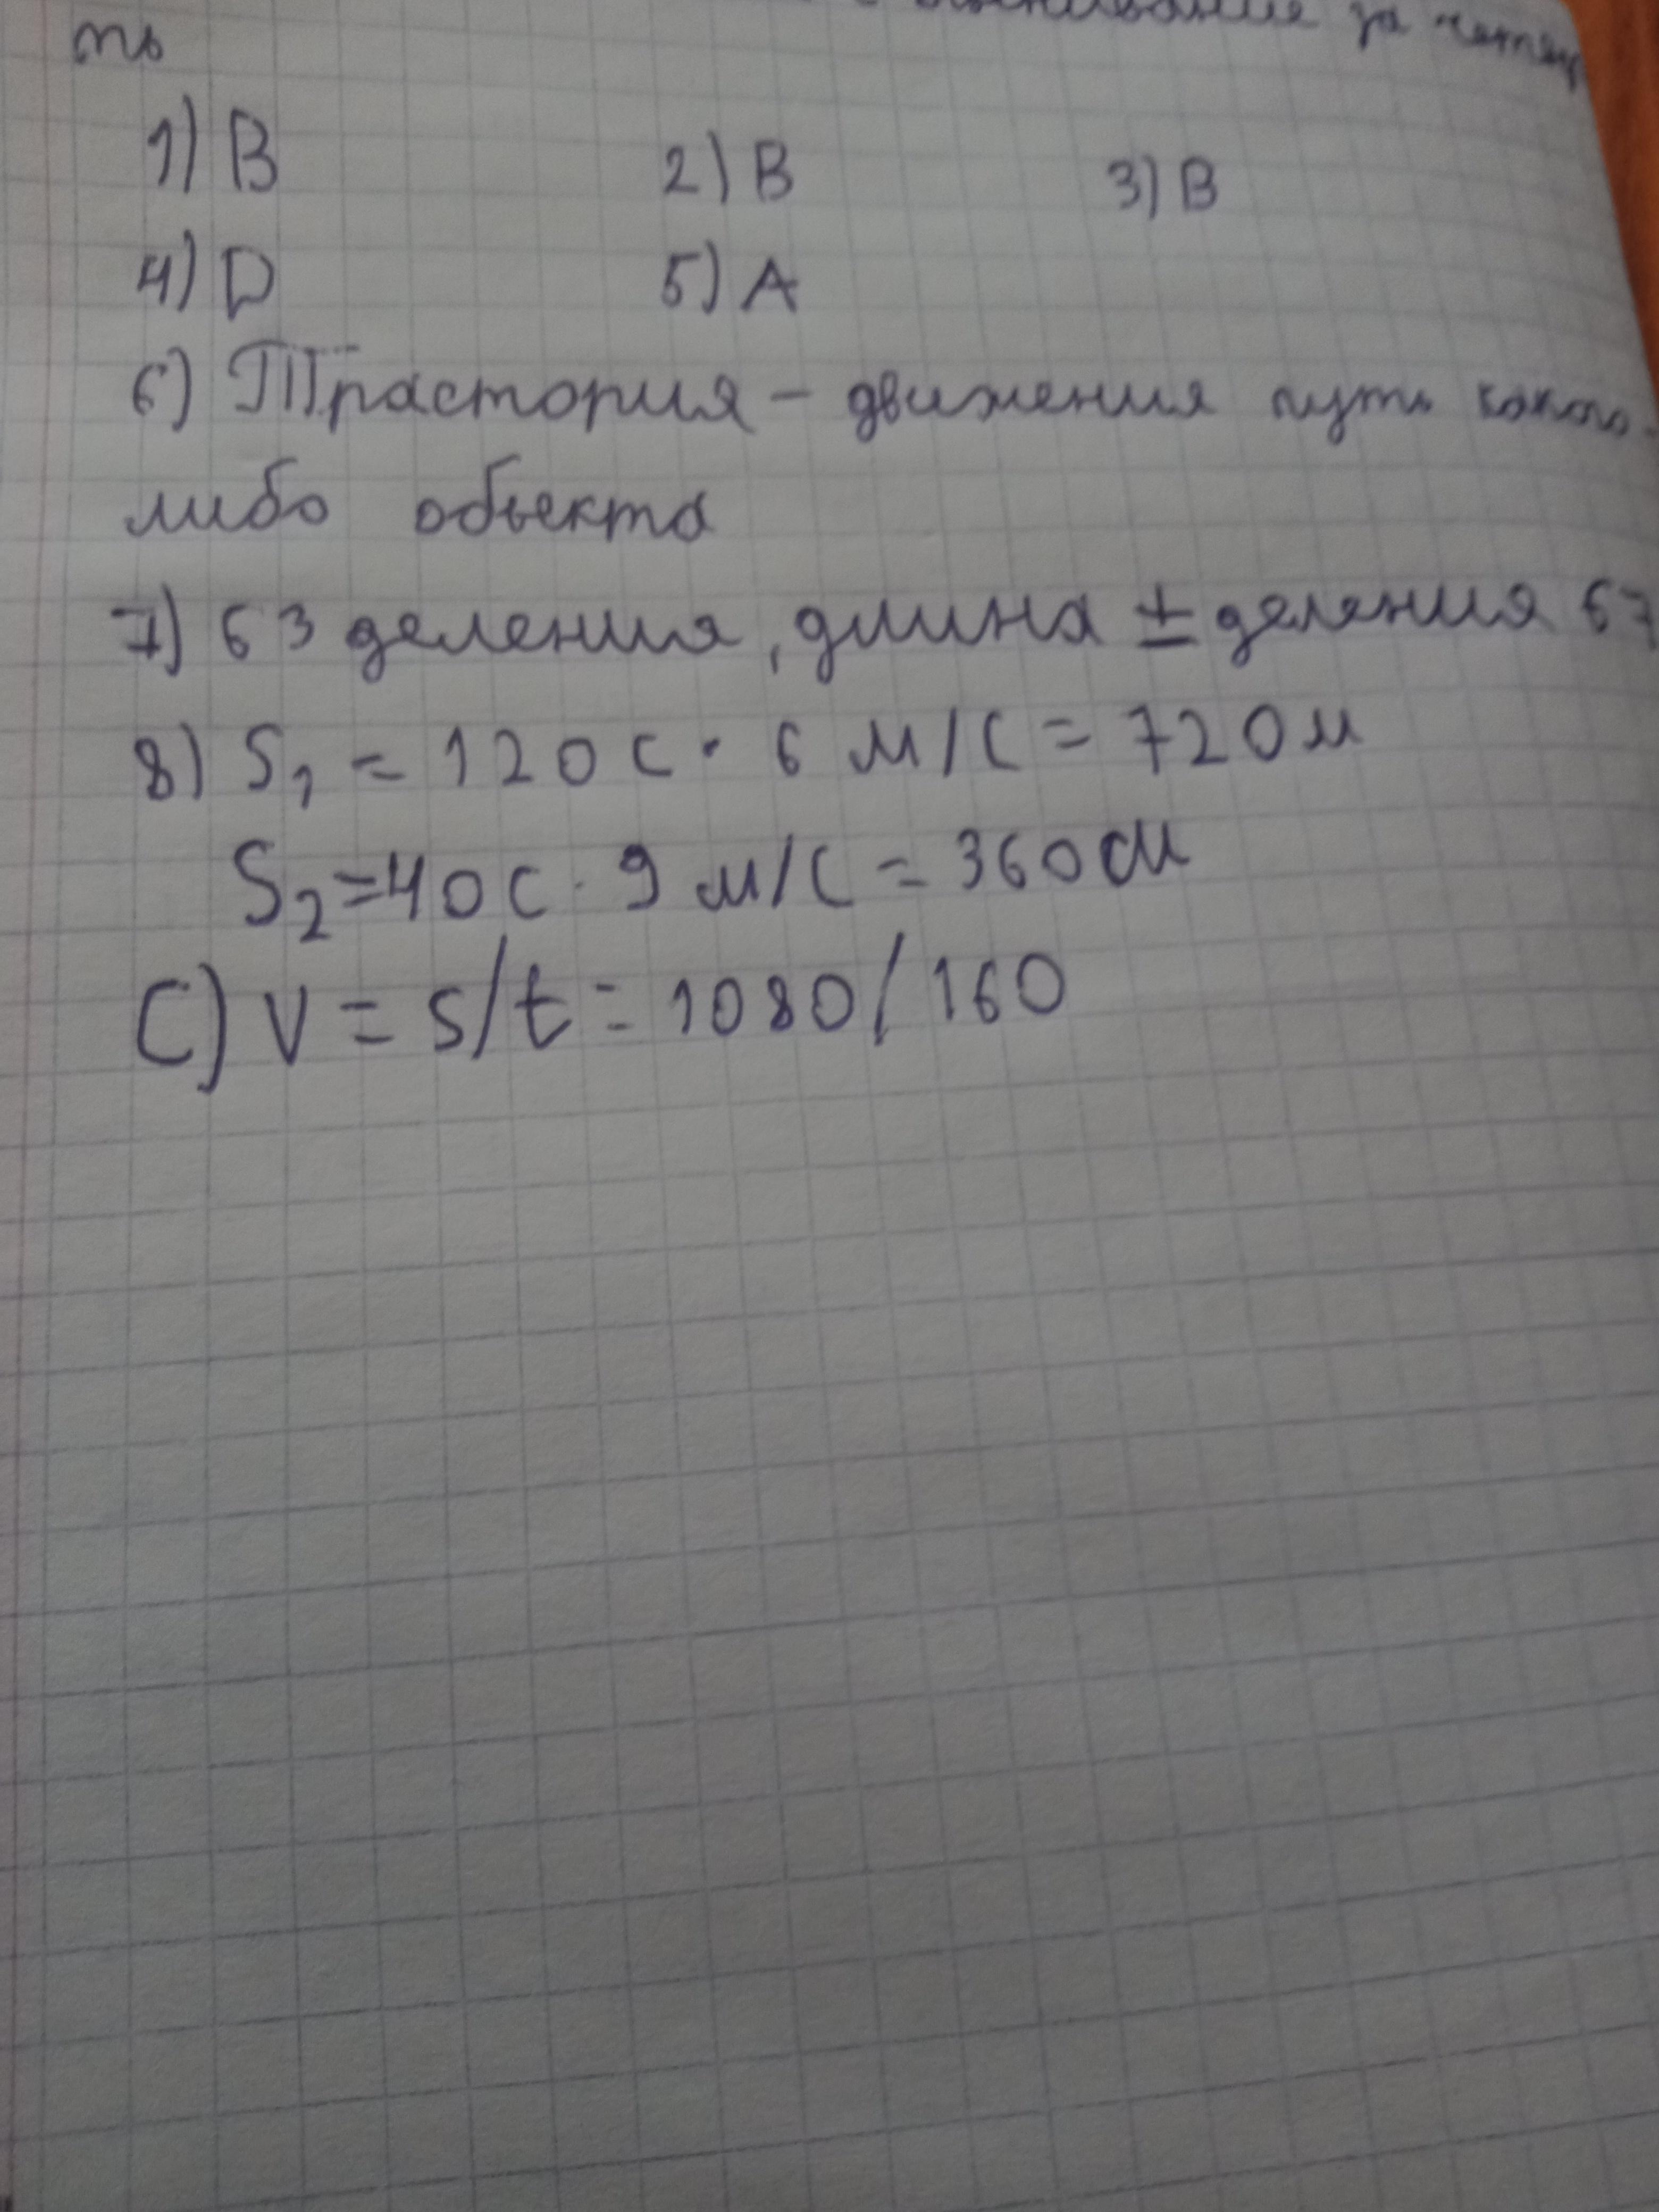 за
ть
1) B 2) B 3) B
4) D 5) A
6) Трастория - движения путь какого-
либо обьекта
7) 63 деления, длина ± деления 67
8) S₁ = 120 с · 6 м/с = 720 м
S₂ = 40 с · 9 м/с = 360 см
C) v = s/t = 1080/160